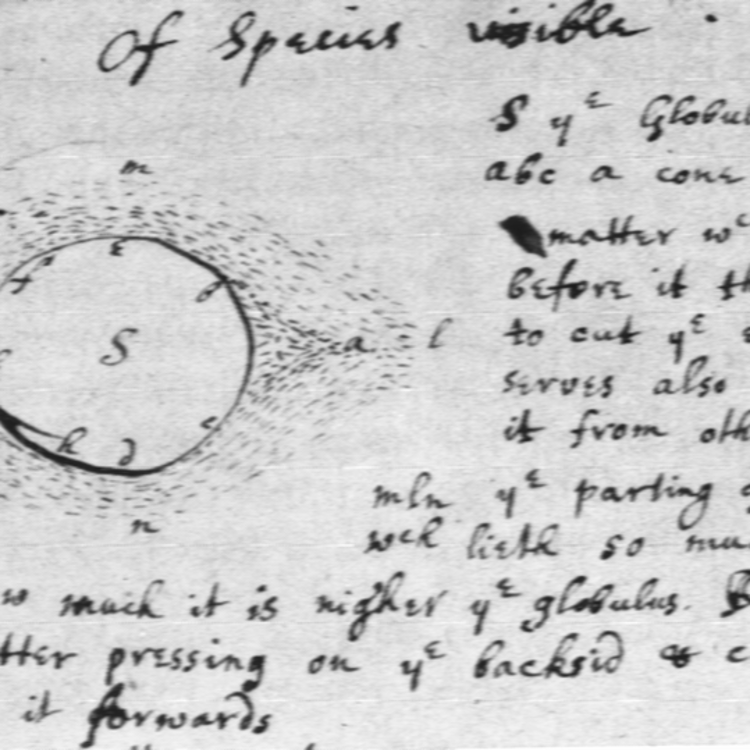 Of Species visible.
S yᵉ Globul
abc a cone
matter wᶜ
before it th
to cut yᵉ
serves also
it from oth
mln yᵉ parting
wch lieth so mu
w much it is nigher yᵉ globulus. B
tter pressing on yᵉ backsid & c
it forwards
m
e
f
g
S
a l
c
h d
n